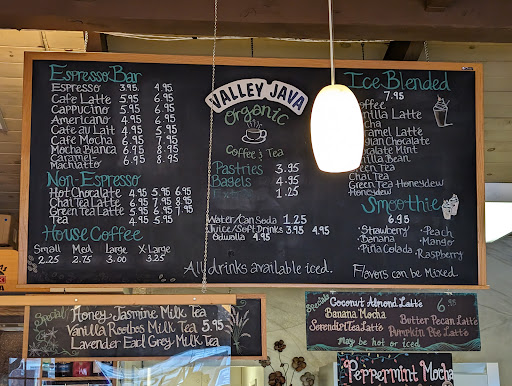 Espresso Bar
Espresso 3.95 4.95
Cafe Latte 5.95 6.95
Cappucino 5.95 6.95
Americano 4.95 6.95
Cafe au Lait 4.95 5.95
Cafe Mocha 6.95 7.95
Mocha Bianca 6.95 8.95
Caramel-
Machiatto 6.95 8.95
Non-Espresso
Hot Chocolate 4.95 5.95 6.95
Chai Tea Latte 6.95 7.95 8.95
Green Tea Latte 5.95 6.95 7.95
Tea 4.95 5.95
House Coffee
Small Med. Large X-Large
2.25 2.75 3.00 3.25
VALLEY JAVA
Organic
Coffee & Tea
Pastries 3.95
Bagels 4.95
1.25
Water/Can Soda 1.25
Juice/Soft Drinks 3.95 4.95
Odwalla 4.95
All drinks available iced.
Ice Blended
7.95
Coffee
Vanilla Latte
Mocha
Caramel Latte
Chocolate
Chocolate Mint
Vanilla Bean
Green Tea
Chai Tea
Green Tea Honeydew
Honeydew
Smoothie
6.95
· Strawberry · Peach
· Banana · Mango
· Piña Colada · Raspberry
Flavors can be Mixed.
Special
Honey-Jasmine Milk Tea
Vanilla Rooibos Milk Tea 5.95
Lavender Earl Grey Milk Tea
Specials
Coconut Almond Latte 6.95
Banana Mocha Butter Pecan Latte
Serendipitea Latte Pumpkin Pie Latte
May be hot or iced
Peppermint Mocha